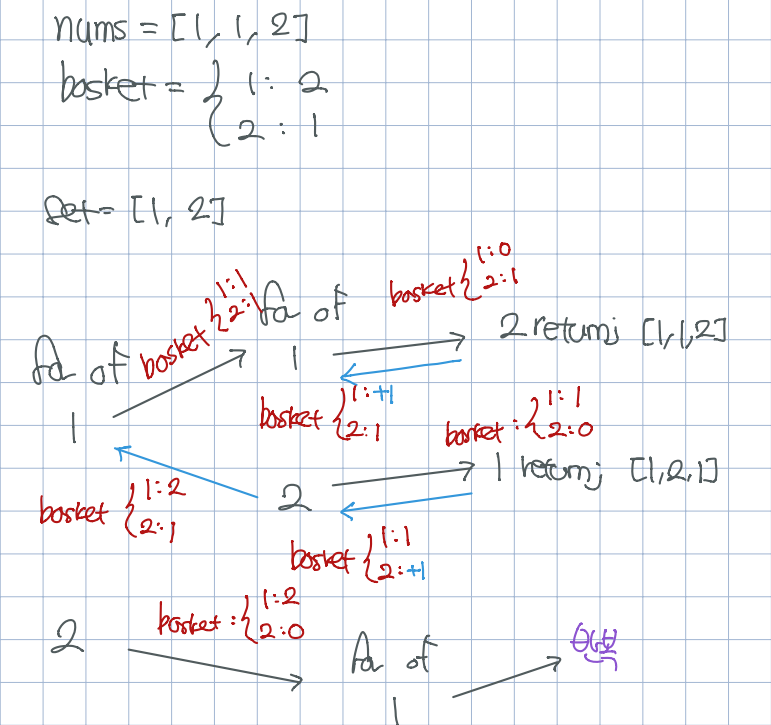 nums = [1, 1, 2]
basket = { 1 : 2
2 : 1
set = [1, 2]
basket { 1:0
2:1
basket { 1:1
2:1
for of
1
2 return; [1,1,2]
for of
1
basket { 1:+1
2:1
basket : { 1:1
2:0
2
1 return; [1,2,1]
basket { 1:2
2:1
basket { 1:1
2:+1
2
basket : { 1:2
2:0
for of
1